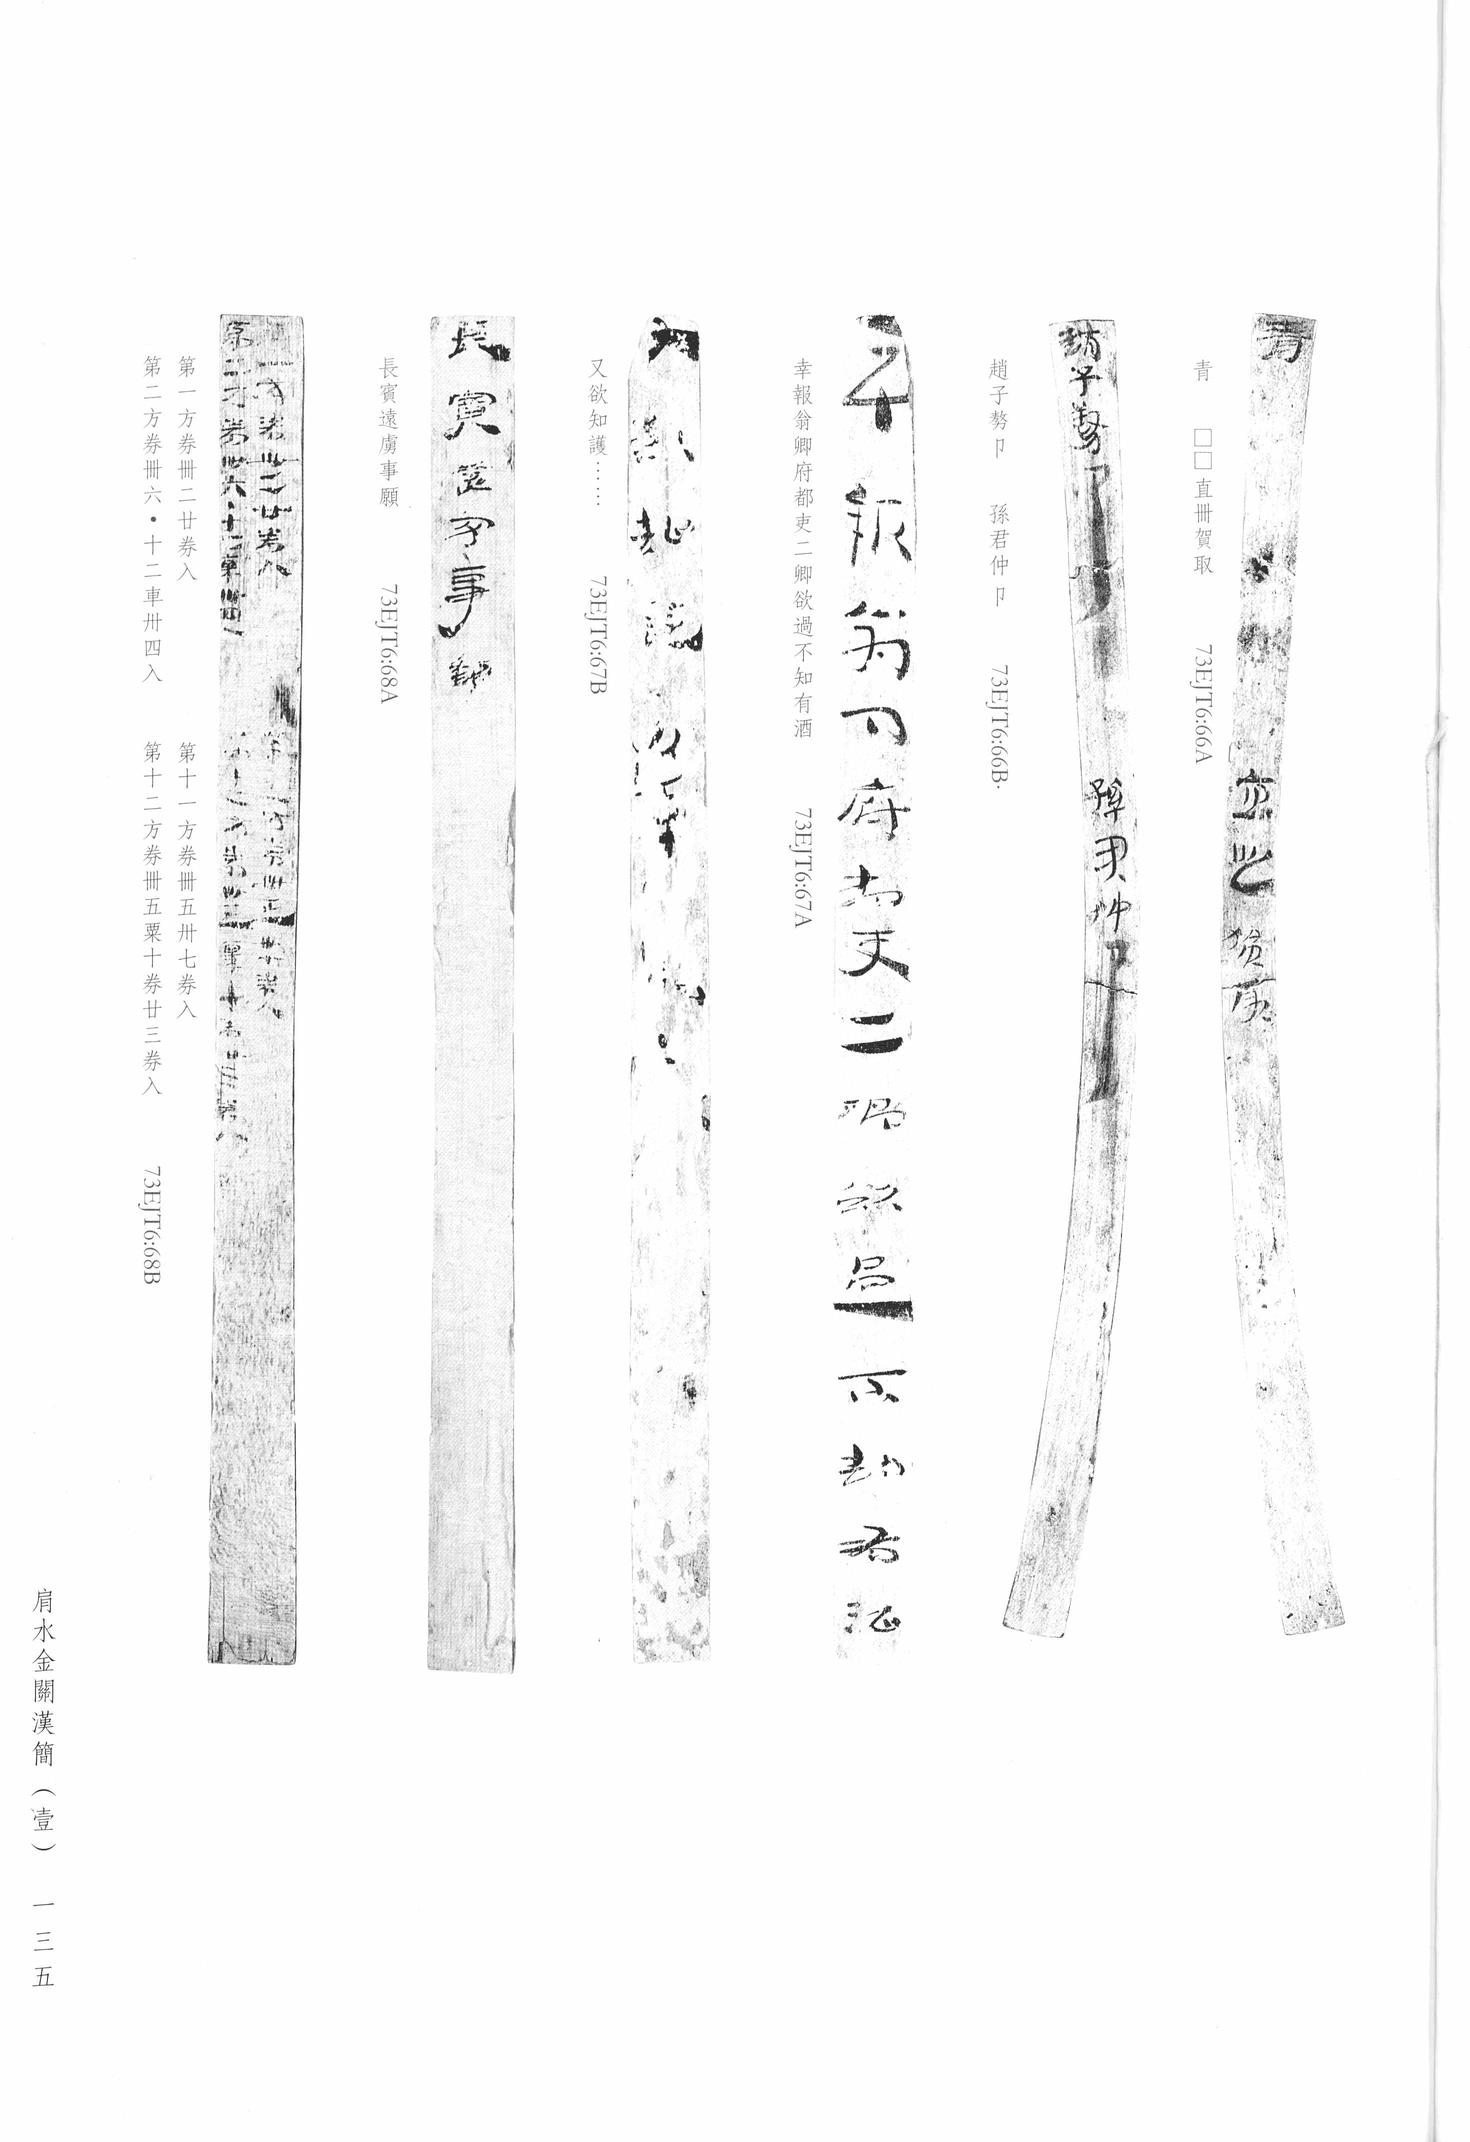 青　　□□直卌賀取　　73EJT6:66A
趙子勢卩　　孫君仲卩　　73EJT6:66B
幸報翁卿府都吏二卿欲過不知有酒　　73EJT6:67A
又欲知護……　　73EJT6:67B
長賓遠虜事願　　73EJT6:68A
第一方券卌二廿券入　　第十一方券卌五卅七券入
第二方券卌六•十二車卅四入　　第十二方券卌五粟十券廿三券入　　73EJT6:68B
肩水金關漢簡（壹）　一三五